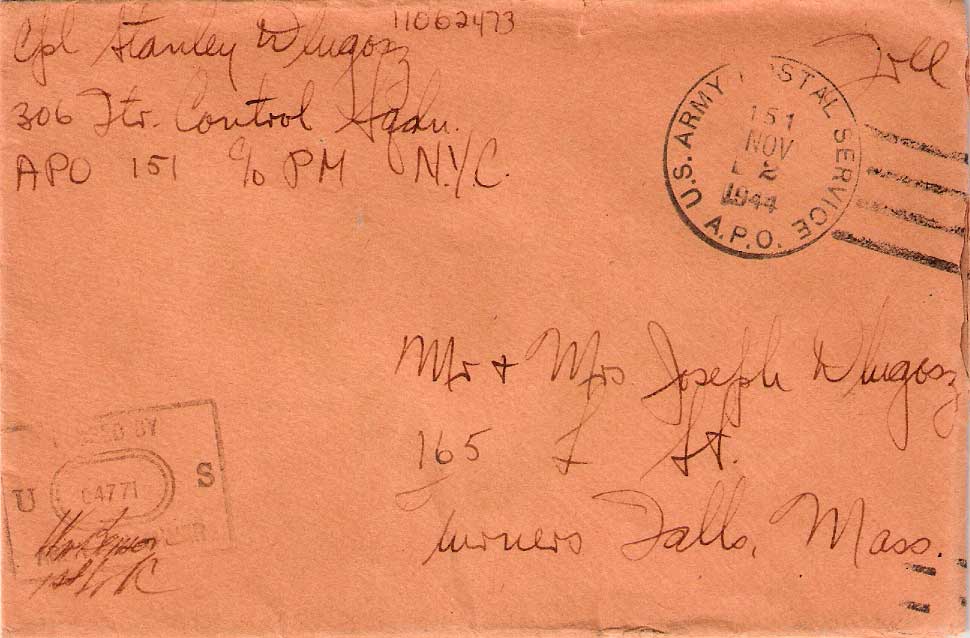 Cpl Stanley Dlugosz 11062473
306 Ftr. Control Sqdn.
APO 151 c/o PM N.Y.C.
Free
U.S. ARMY POSTAL SERVICE
151
NOV
2
1944
A.P.O.
Mr + Mrs Joseph Dlugosz
165 L St.
Turners Falls, Mass.
BY
U 04771 S